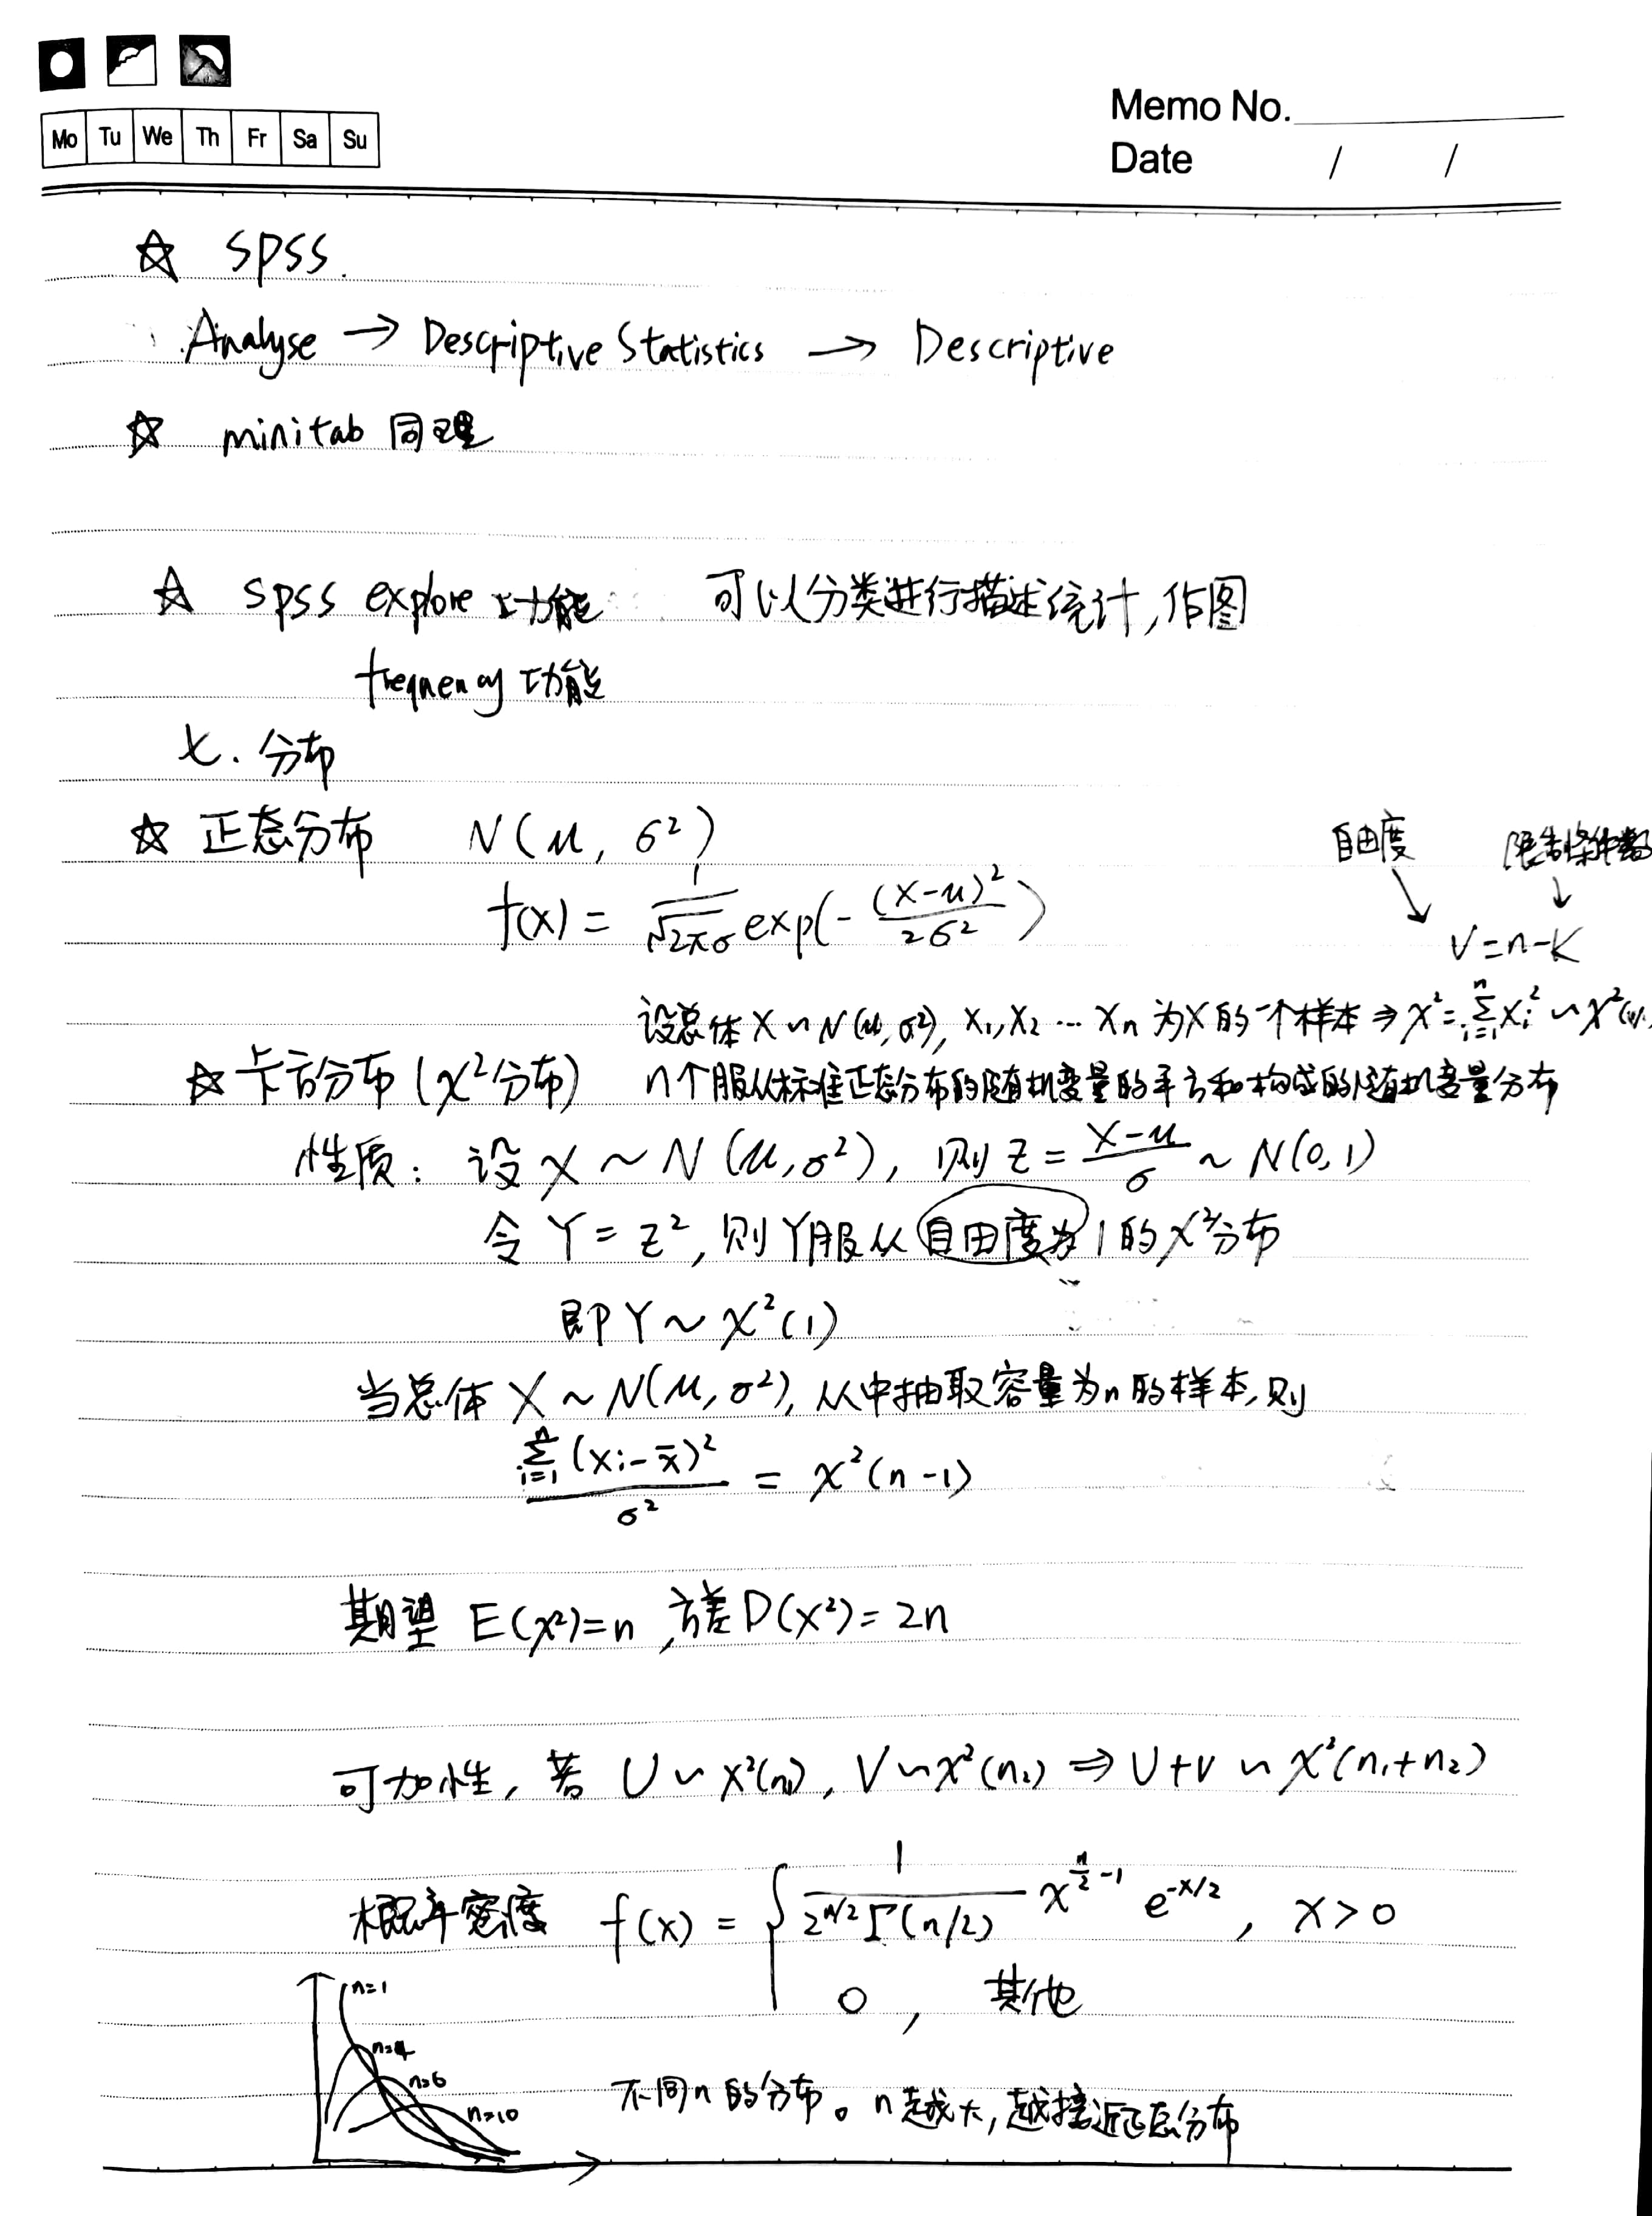 Mo Tu We Th Fr Sa Su
Memo No.
Date / /
☆ SPSS.
Analyse → Descriptive Statistics → Descriptive
☆ minitab 同理
☆ spss explore 功能 可以分类进行描述统计,作图
frequency 功能
七. 分布
☆ 正态分布 N(μ, σ²)
自由度 限制条件数
f(x) = 1/(√2π σ) exp(- (x-μ)²/2σ²)
V = n-K
设总体 X ~ N(μ, σ²), X₁, X₂ … Xₙ 为X的一个样本 ⇒ χ² = Σᵢ₌₁ⁿ Xᵢ² ~ χ²(n)
☆ 卡方分布 (χ²分布) n个服从标准正态分布的随机变量的平方和构成的随机变量分布
性质: 设 X ~ N(μ, σ²), 则 Z = (X-μ)/σ ~ N(0,1)
令 Y = Z², 则Y服从自由度为1的χ²分布
即 Y ~ χ²(1)
当总体 X ~ N(μ, σ²), 从中抽取容量为n的样本,则
Σᵢ₌₁ⁿ (xᵢ-x̄)² / σ² = χ²(n-1)
期望 E(χ²)=n, 方差 D(χ²)=2n
可加性, 若 U ~ χ²(n₁), V ~ χ²(n₂) ⇒ U+V ~ χ²(n₁+n₂)
概率密度 f(x) = { 1/(2^(n/2) Γ(n/2)) x^(n/2 -1) e^(-x/2), x>0
0, 其他
n=1
n=4
n=6
n=10
不同n的分布。n越大,越接近正态分布